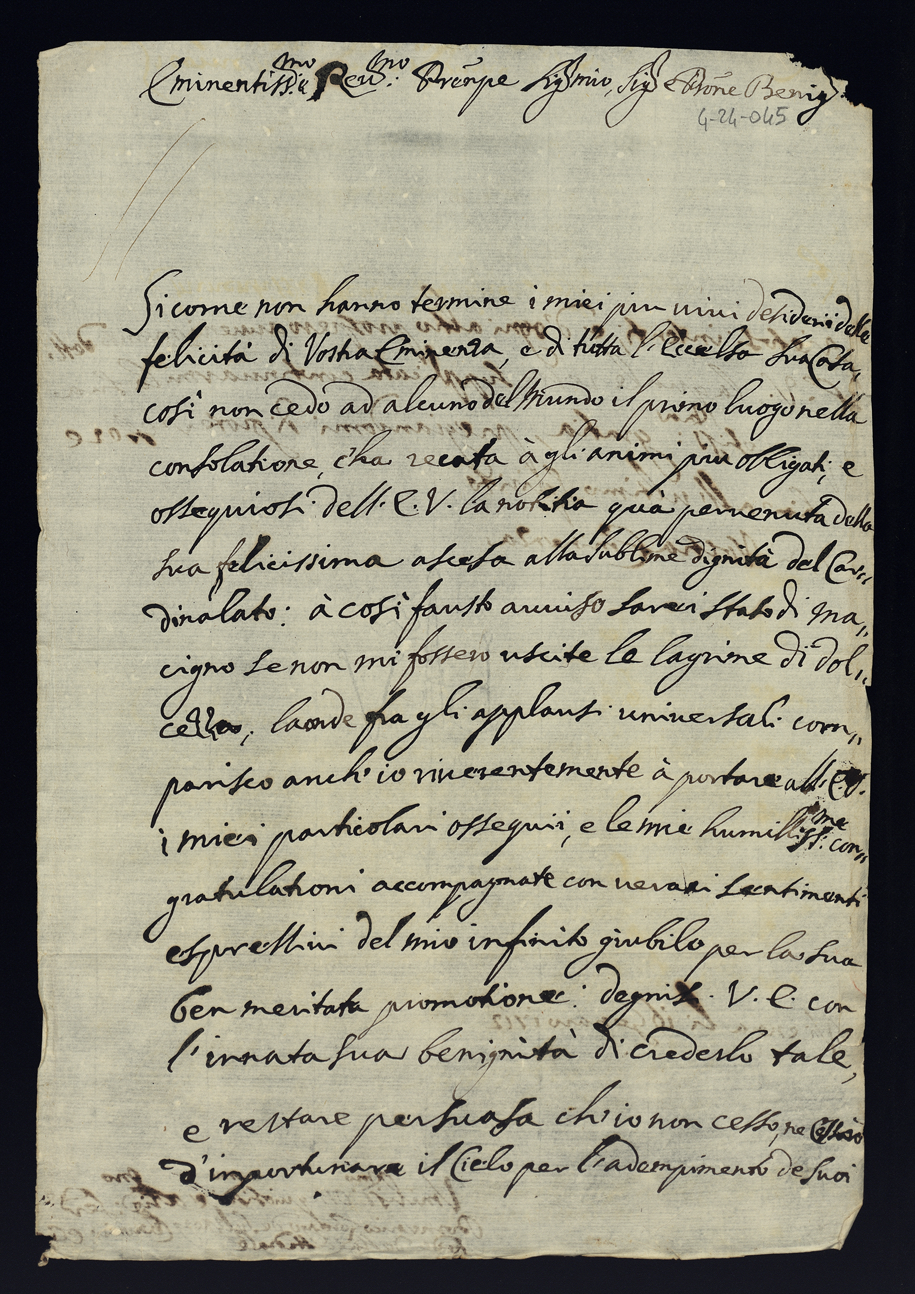 Eminentiss:mo e Reu:mo Prenpe Sig mio, Sig e Prone Benig
4-24-045
Si come non hanno termine i miei piu viui desiderij della
felicità di Vostra Eminenza, e di tutta l'Eccelsa sua Casa,
così non cedo ad alcuno del Mundo il primo luogo nella
consolatione, cha recata à gli animi piu obligati, e
ossequiosi dell'E.V. la notitia quà peruenuta della
sua felicissima ascesa alla sublime dignità del Car,,
dinalato: à così fausto auuiso sarei stato di ma,,
cigno se non mi fossero uscite le lagrime di dol,,
cezza, laonde fra gli applausi uniuersali com,,
parisco anch'io riuerentemente à portare all'E.V.
i miei particolari ossequij, e le mie humiliss:me con,,
gratulationi accompagnate con veraci sentimenti
espressiui del mio infinito giubilo per la sua
ben meritata promotione: degnisi V.E. con
l'innata sua benignità di crederlo tale,
e restare persuasa ch'io non cesso, ne cesserò
d'importunare il Cielo per l'adempimento de suoi